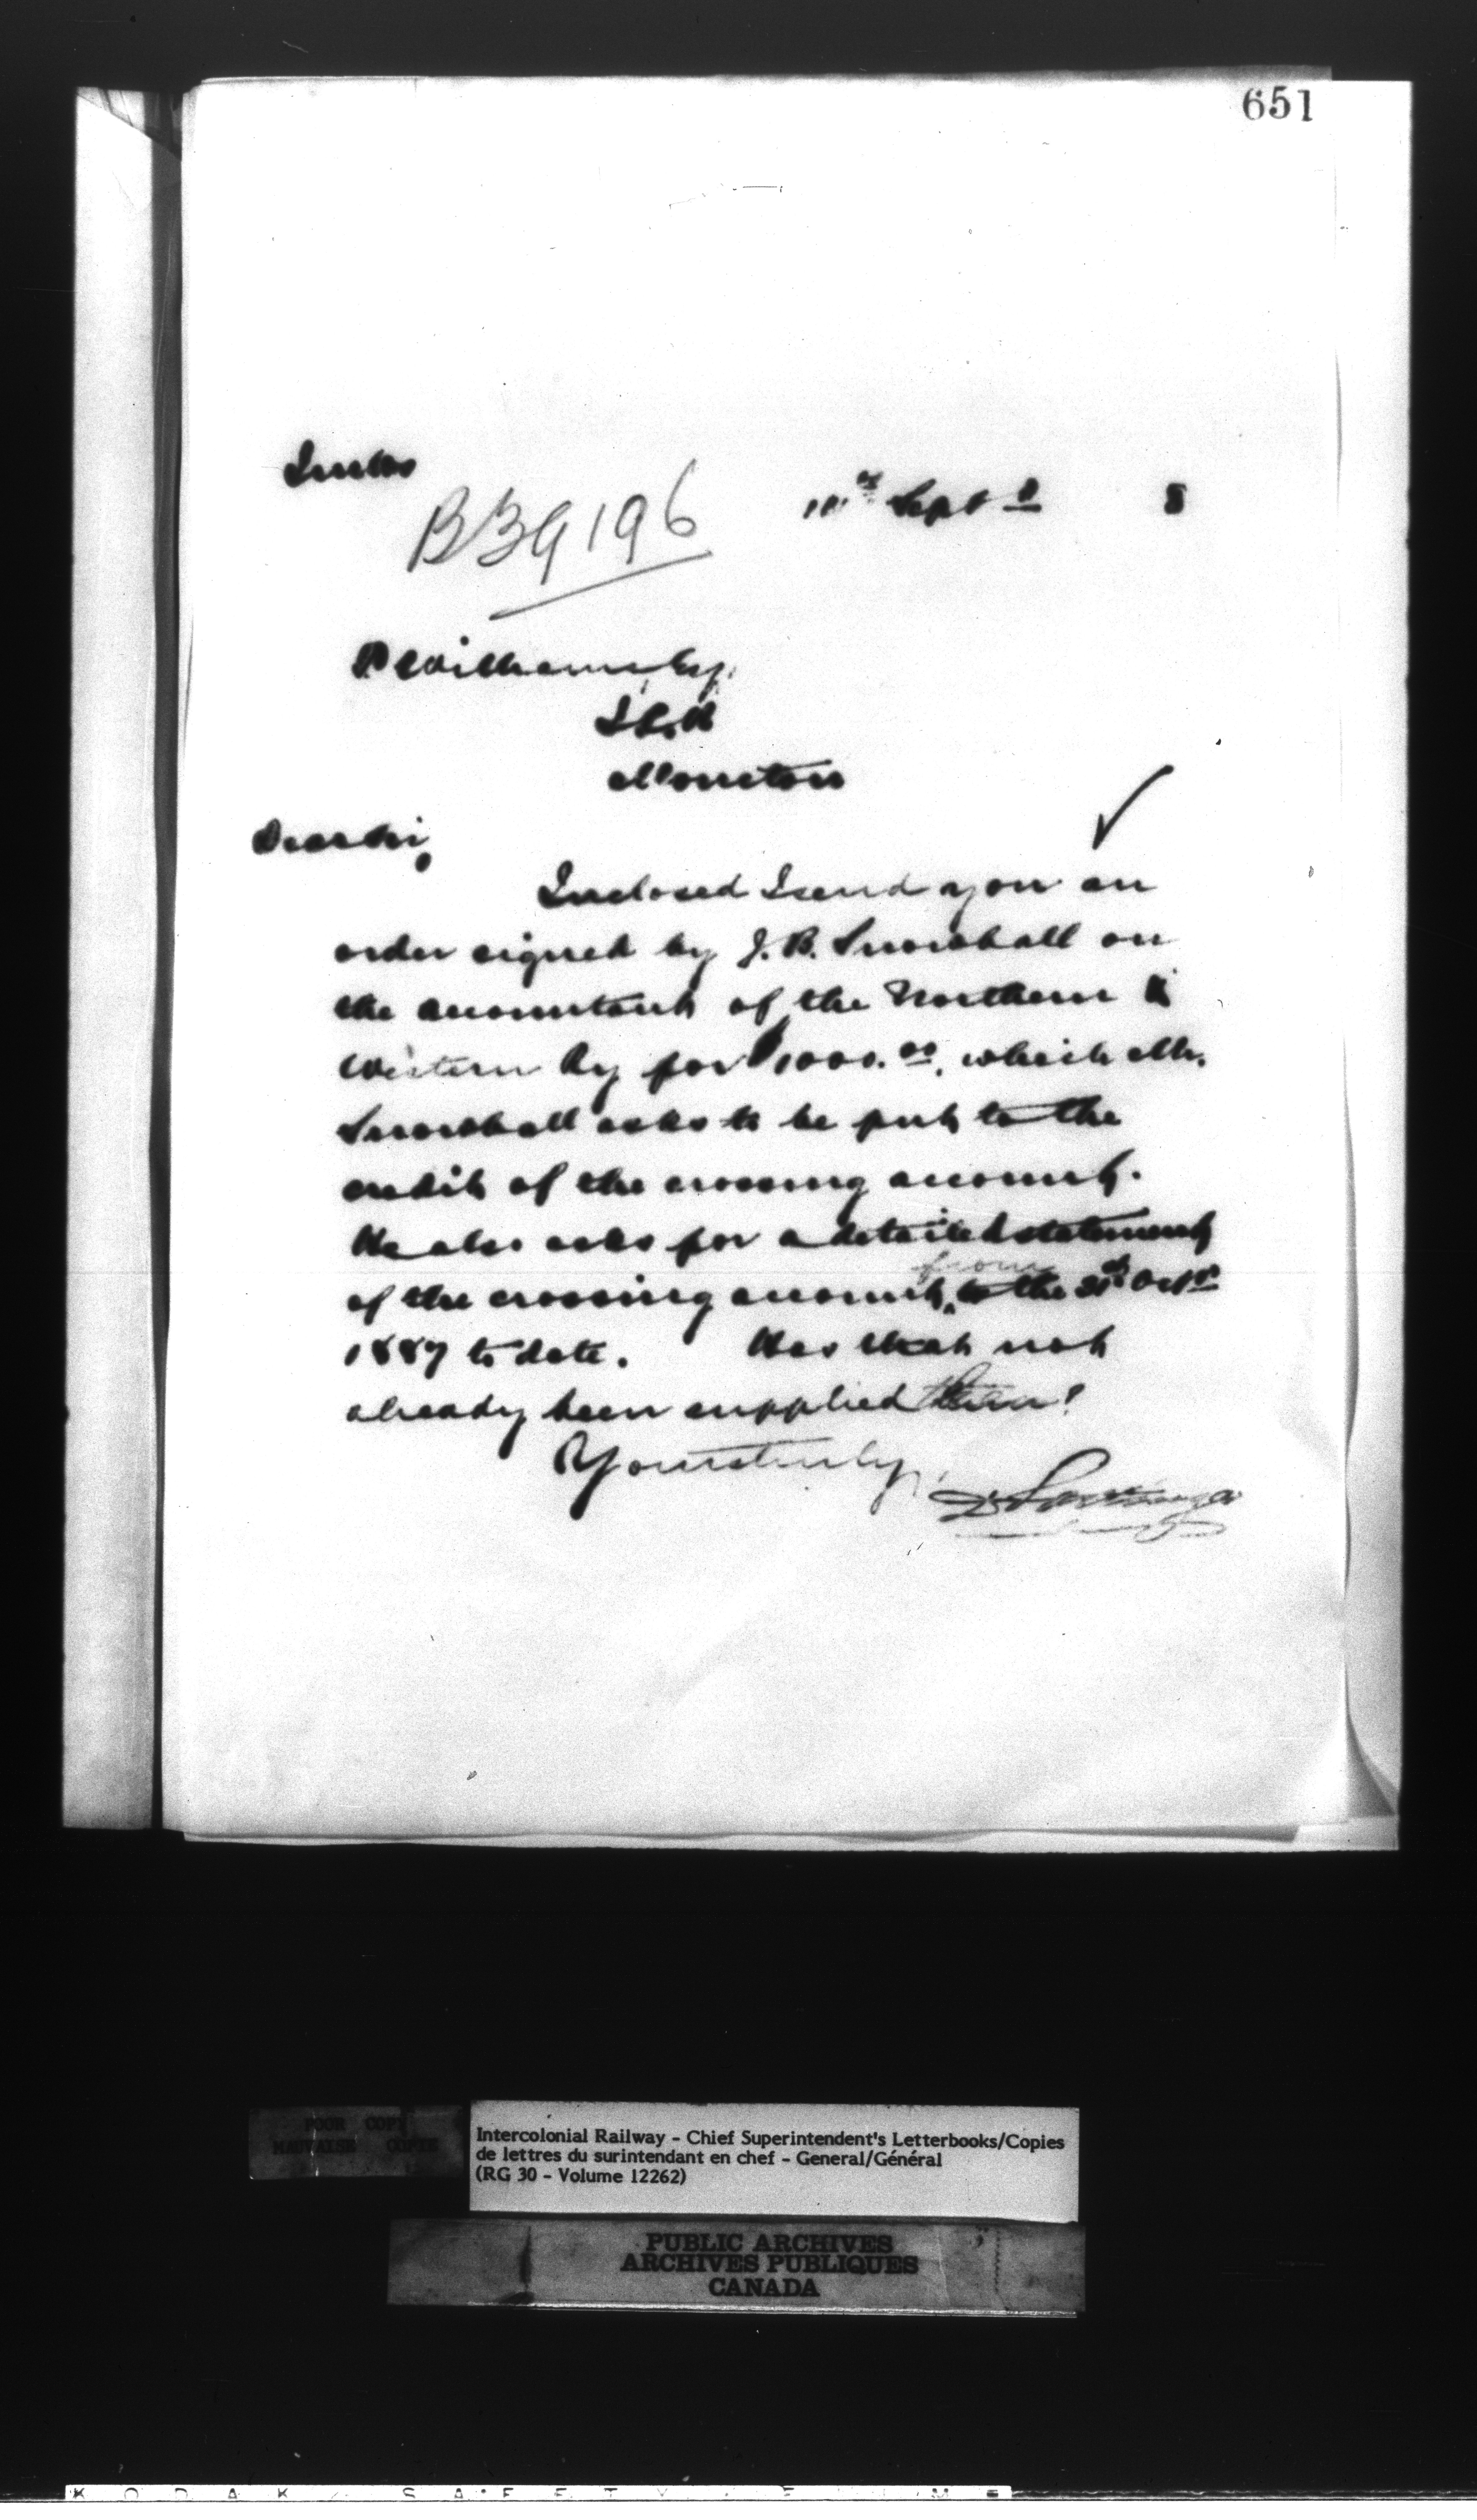 651
Incls
B39196
11th Sept r 8
P Williams, Esq.
I.C.R
Moncton
Dear Sir,
Inclosed I send you an
order signed by J. B. Snowball on
the accountant of the Northern &
Western Ry for $1000.00, which Mr.
Snowball asks to be put to the
credit of the crossing account.
He also asks for a detailed statement
from
of the crossing account, to the 31st Octr
1887 to date. Has that not
already been supplied them?
Yours truly,
POOR COPY
MAUVAISE COPIE
Intercolonial Railway - Chief Superintendent's Letterbooks/Copies
de lettres du surintendant en chef - General/Général
(RG 30 - Volume 12262)
PUBLIC ARCHIVES
ARCHIVES PUBLIQUES
CANADA
KODAK SAFETY FILM